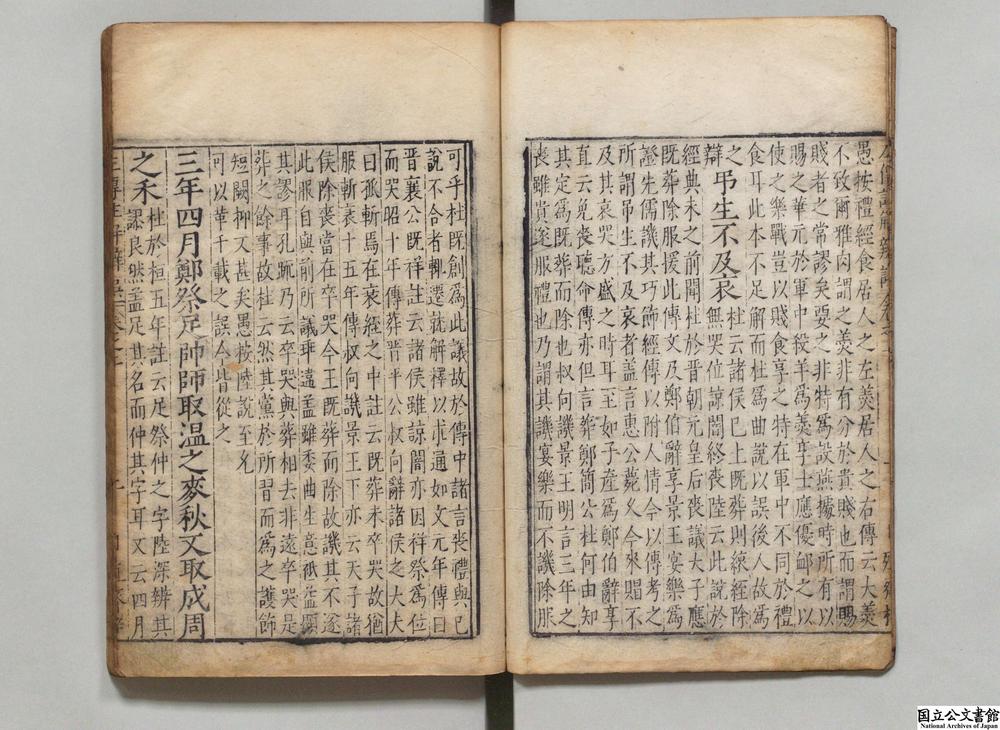 愚按禮經食居人之左羮居人之右傳云大羮
不致爾雅肉謂之羮非有分於貴賤也而謂賜
賤者之常謬矣要之非特為設燕據時所有以
賜之華元於軍中殺羊為羮享士應優卹之以
使之樂戰豈以賤食享之特在軍中不同於禮
食耳此本不足解而杜爲曲說以誤後人故爲
之辯
弔生不及哀
杜云諸侯已上既葬則縗絰除
無哭位諒闇終喪陸云此說於
經典未之前聞杜於晉朝元皇后喪議大子應
既葬除服援此傳文及鄭伯辭享景王宴樂爲
證先儒譏其巧飾經傳以附人情今以傳考之
所謂吊生不及哀者蓋言惠公薨久今來賵不
及其哀哭方盛之時耳至如子產爲鄭伯辭享
直云免喪聽命傳亦但言葬鄭簡公杜何由知
其定爲既葬而除也叔向譏景王明言三年之
喪雖貴遂服禮也乃謂其譏宴樂而不譏除服
可乎杜既創爲此議故於傳中諸言喪禮與己
說不合者輒遷就解釋以求通如文元年傳曰
晉襄公既祥註云諸侯雖諒闇亦因祥祭爲位
而哭昭十年傳葬晉平公叔向辭諸侯之大夫
曰孤斬焉在衰絰之中註云既葬未卒哭故猶
服斬衰十五年傳叔向譏景王下亦云天子諸
侯除喪當在卒哭今王既葬而除故譏其不遂
此服自與前所議乖違盖雖委曲生意祇益顯
其謬耳孔疏乃云卒哭與葬相去非遠卒哭是
葬之餘事故杜云然其黨於所習而爲之護飾
短闕抑又甚矣愚按陸說至允
可以革千載之誤今皆從之
三年四月鄭祭足帥師取温之麥秋又取成周
之禾
杜於桓五年註云足祭仲之字陸深辨其
謬良然盖足其名而仲其字耳又云四月